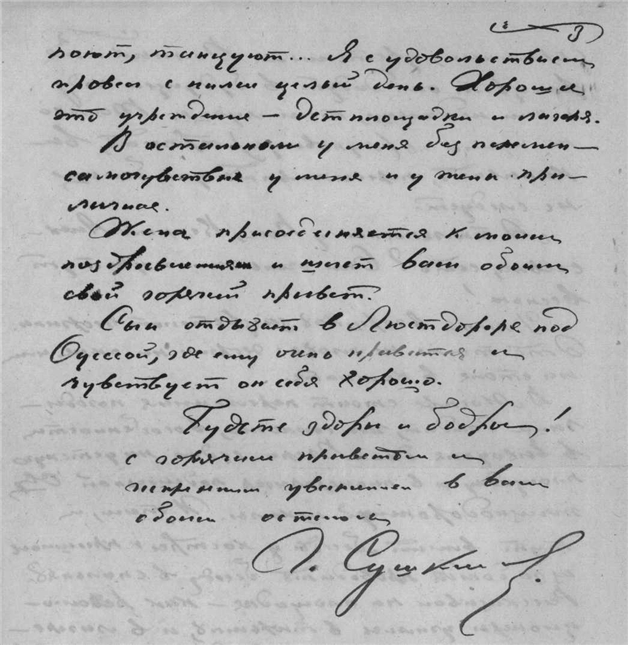 3
поют, танцуют... Я с удовольствием
провел с ними целый день. Хорошее
это учреждение — детплощадки и лагеря.
В остальном у меня без перемен —
самочувствие у меня и у жены при-
личное.
Жена присоединяется к моим
поздравлениям и шлет вам обоим
свой горячий привет.
Сын отдыхает в Люстдорфе под
Одессой, где ему очень нравится и
чувствует он себя хорошо.
Будьте здоровы и бодры!
с горячим приветом и
искренним уважением к вам
обоим остаюсь